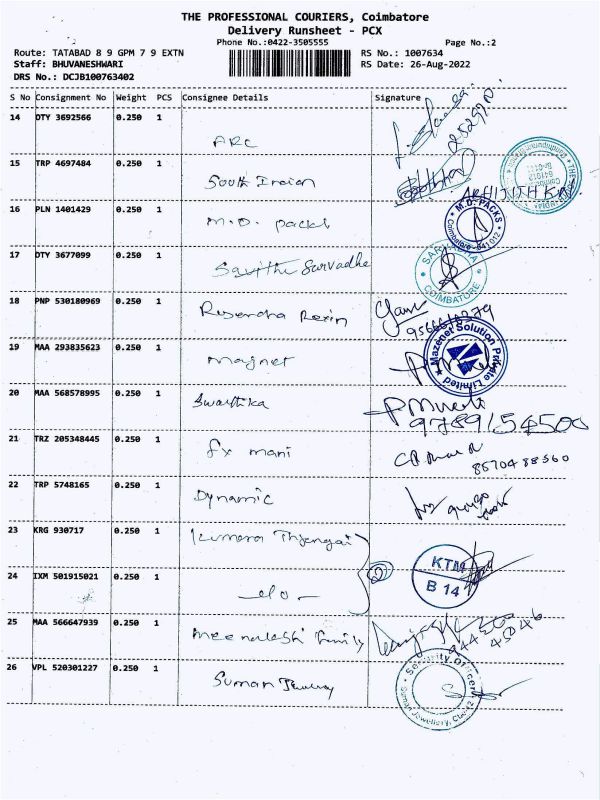 THE PROFESSIONAL COURIERS, Coimbatore
Delivery Runsheet - PCX
Phone No.:0422-3505555 Page No.:2
Route: TATABAD 8 9 GPM 7 9 EXTN RS No.: 1007634
Staff: BHUVANESHWARI RS Date: 26-Aug-2022
DRS No.: DCJB100763402
S No Consignment No Weight PCS Consignee Details Signature
14 DTY 3692566 0.250 1 ARC
15 TRP 4697484 0.250 1 South Indian ABHIJITH
16 PLN 1401429 0.250 1 M.D. Packs M.D. PACKS Coimbatore - 641 012
17 DTY 3677099 0.250 1 Savithi Sarvadha COIMBATORE
18 PNP 530180969 0.250 1 Rexin
19 MAA 293835623 0.250 1 Magnet Mazenet Solution Private Limited
20 MAA 568578995 0.250 1 Swasthika
21 TRZ 205348445 0.250 1 fx mani 8570488560
22 TRP 5748165 0.250 1 Dynamic
23 KRG 930717 0.250 1 Kumera
24 IXM 501915021 0.250 1 2 KTM B 14
25 MAA 566647939 0.250 1 Meenakshi family
26 VPL 520301227 0.250 1 Suman Security Officer Suman Jewellery